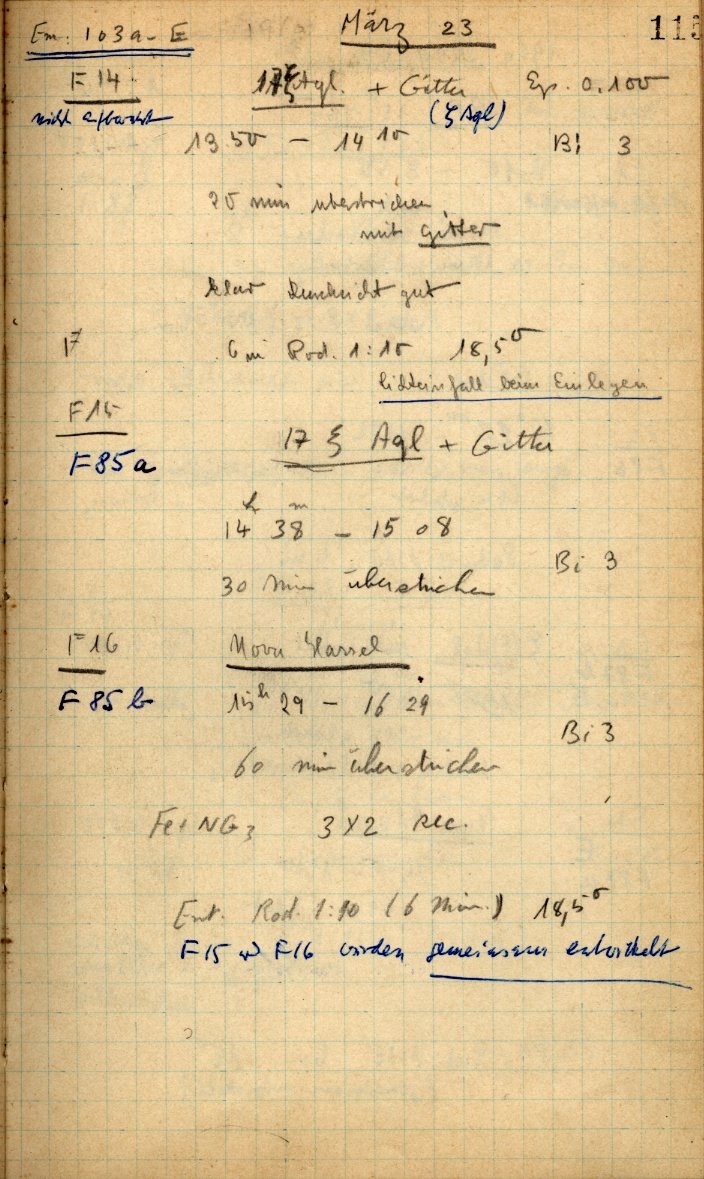 Em. 103a-E März 23 115
F 14 17 ξ Agl. + Gitter Sp. 0.100
nicht aufbewahrt (ζ Agl)
13 50 - 14 10 Bi 3
20 min überstrichen
mit Gitter
klar Durchsicht gut
17 6 m Rod. 1:10 18,5°
Lichteinfall beim Einlegen
F 15
F 85a 17 ξ Agl + Gitter
h m
14 38 - 15 08
Bi 3
30 min überstrichen
F 16 Nova Hassel
F 85 b 15h 29 - 16 29
Bi 3
60 min überstrichen
Fe + NG3 3x2 sec.
Ent. Rod. 1:10 (6 Min.) 18,5°
F15 F16 wurden gemeinsam entwickelt